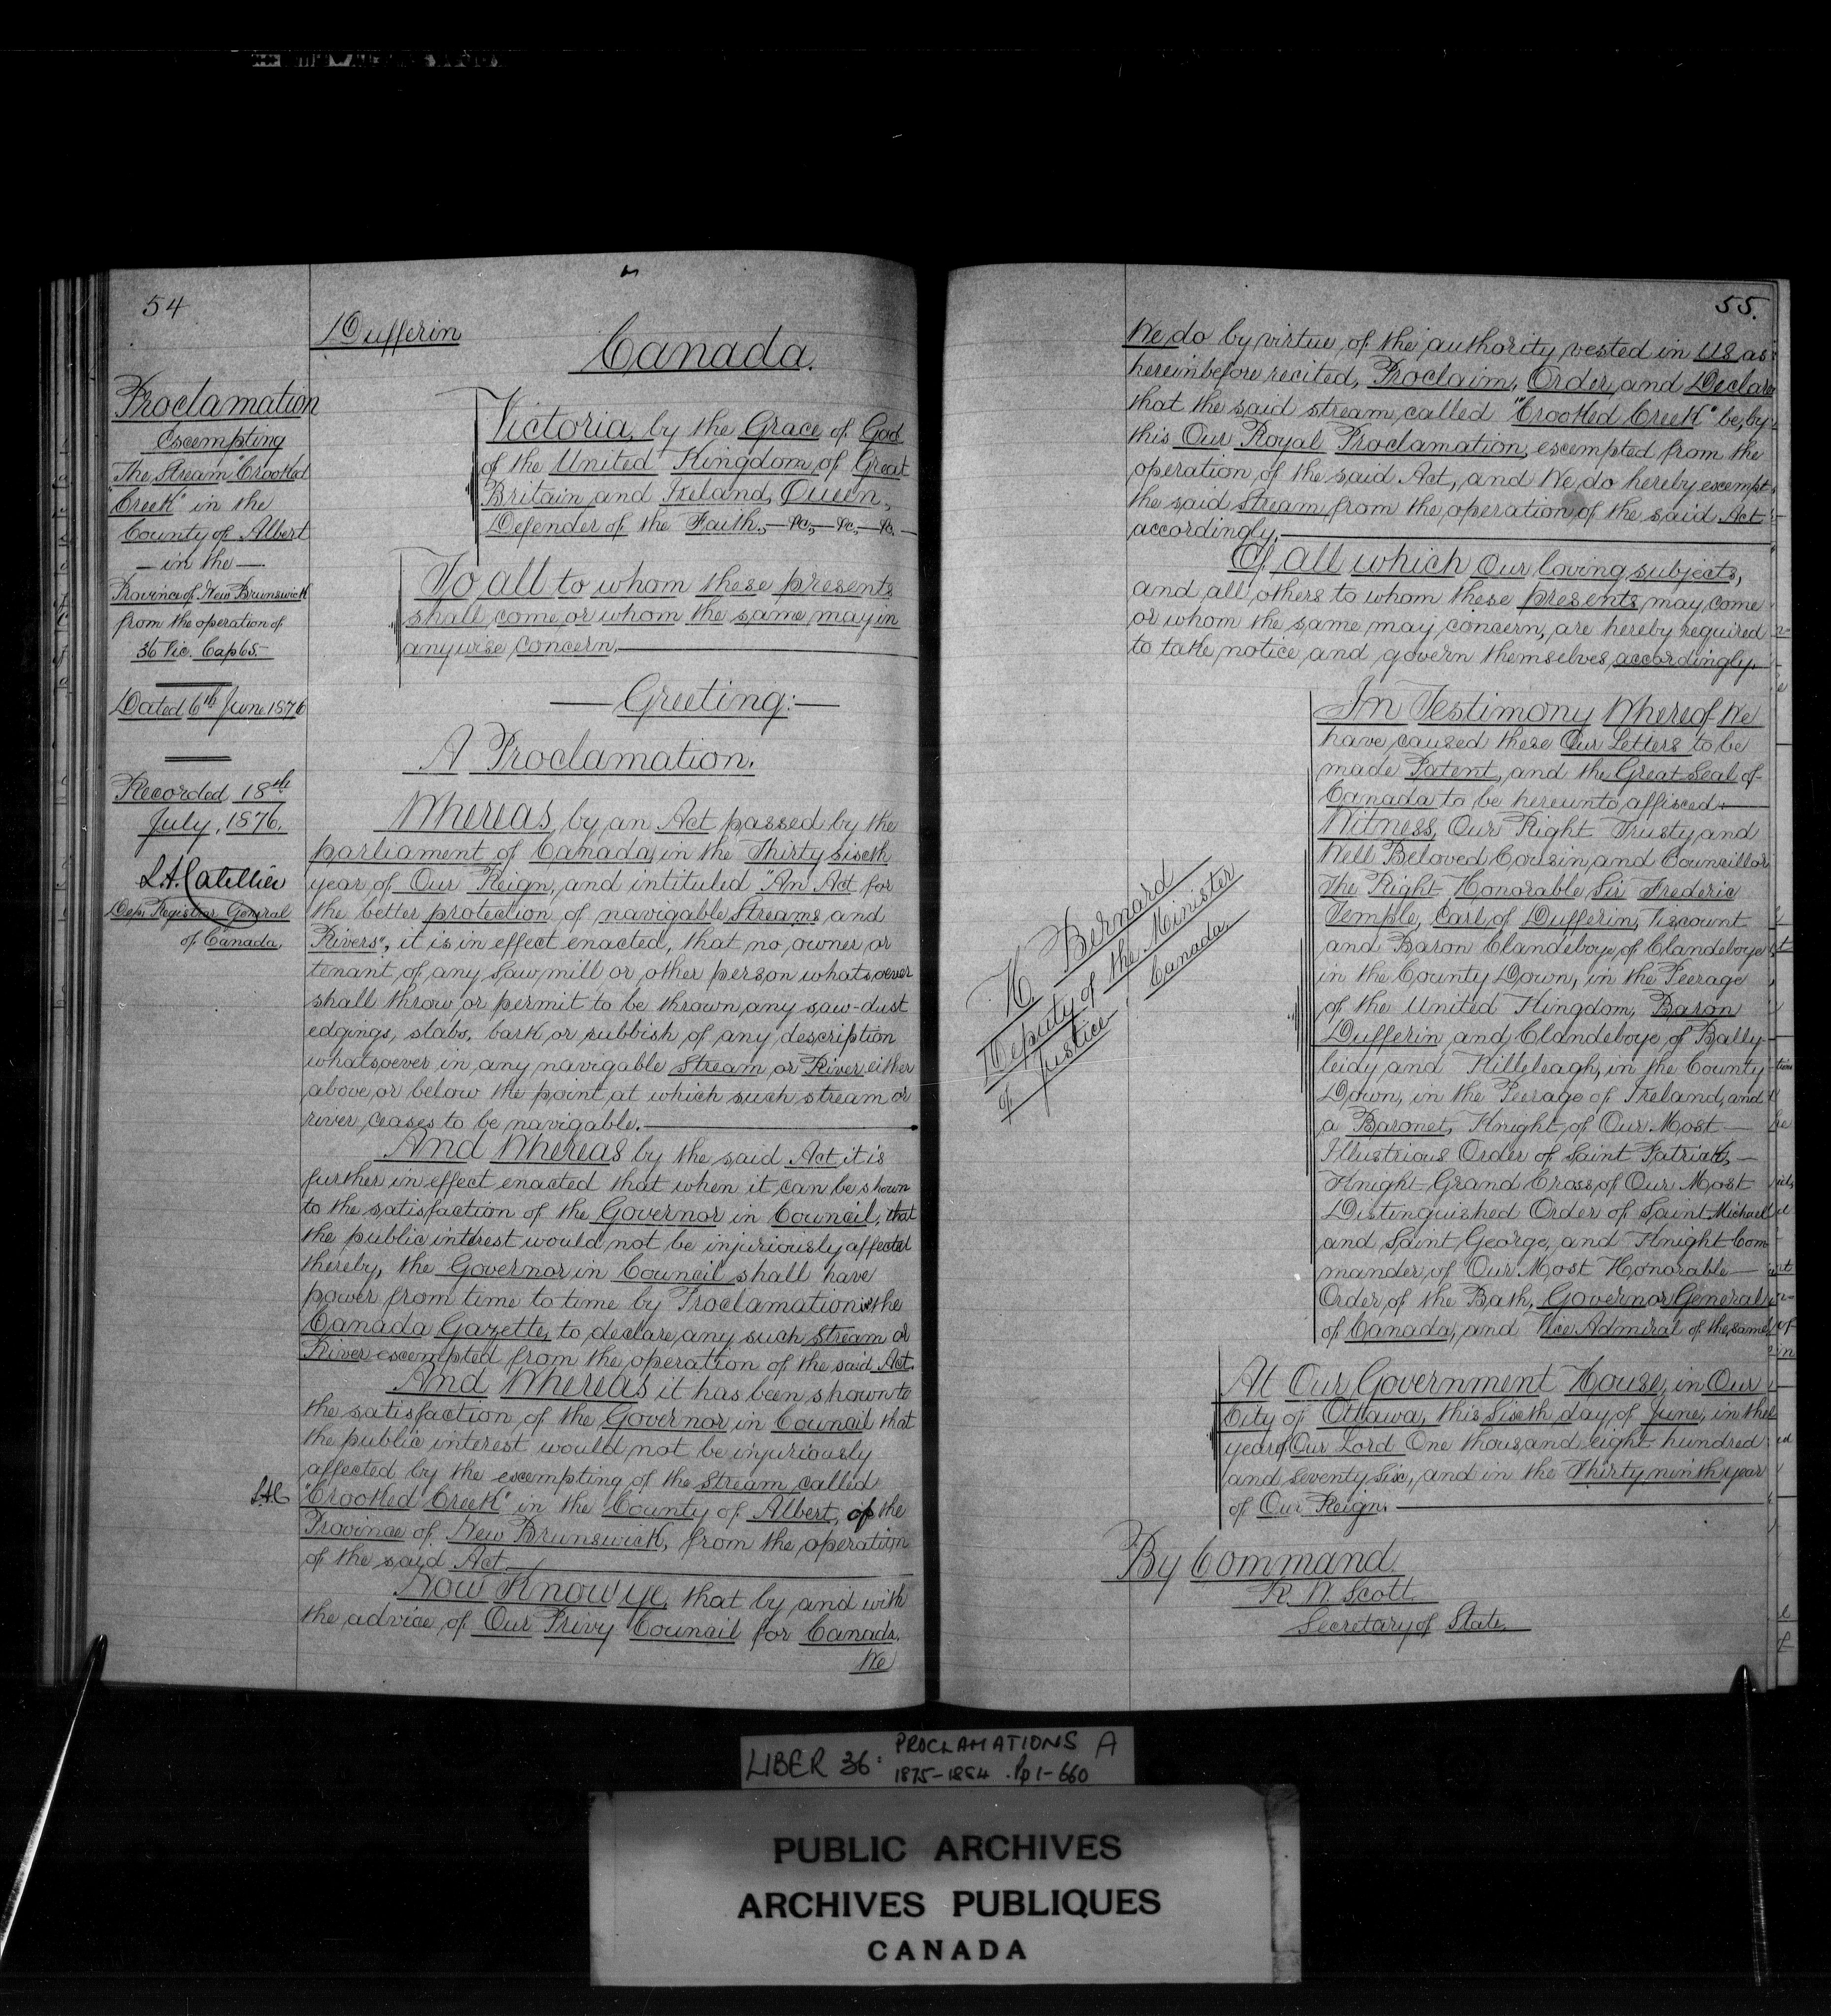 54
Dufferin
Canada.
Proclamation
Exempting
The Stream "Crooked
Creek" in the
County of Albert
— in the —
Province of New Brunswick
from the operation of
36 Vic. Cap 65.
Dated 6th June 1876
Recorded 18th
July, 1876.
L.A. Catellier
Dep. Registrar General
of Canada.
Victoria, by the Grace of God
of the United Kingdom of Great
Britain and Ireland, Queen,
Defender of the Faith, — &c, — &c, — &c. —
To all to whom these presents
shall come or whom the same may in
anywise concern.
— Greeting: —
A Proclamation.
Whereas, by an Act passed by the
parliament of Canada, in the Thirty sixth
year of Our Reign, and intituled "An Act for
the better protection of navigable Streams and
Rivers", it is in effect enacted, that no owner or
tenant of any saw mill or other person whatsoever
shall throw or permit to be thrown any saw-dust
edgings, slabs, bark or rubbish of any description
whatsoever in any navigable Stream or River either
above or below the point at which such stream or
river ceases to be navigable.
And Whereas by the said Act it is
further in effect enacted that when it can be shown
to the satisfaction of the Governor in Council, that
the public interest would not be injuriously affected
thereby, the Governor in Council shall have
power from time to time by Proclamation in the
Canada Gazette, to declare any such Stream or
River exempted from the operation of the said Act.
And Whereas it has been shown to
the satisfaction of the Governor in Council that
the public interest would not be injuriously
affected by the exempting of the Stream called
L.A.C. "Crooked Creek" in the County of Albert, of the
Province of New Brunswick, from the operation
of the said Act.
Now Know Ye, that by and with
the advice of Our Privy Council for Canada,
We
55.
We do by virtue of the authority vested in US as
hereinbefore recited, Proclaim, Order, and Declare
that the said stream, called "Crooked Creek" be, by
this Our Royal Proclamation, exempted from the
operation of the said Act, and We do hereby exempt
the said Stream from the operation of the said Act
accordingly.
Of all which Our loving subjects,
and all others to whom these presents may come
or whom the same may concern, are hereby required
to take notice and govern themselves accordingly.
In Testimony Whereof We
have caused these Our Letters to be
made Patent, and the Great Seal of
Canada to be hereunto affixed:
Witness, Our Right Trusty and
Well Beloved Cousin and Councillor
The Right Honorable Sir Frederic
Temple, Earl of Dufferin, Viscount
and Baron Clandeboye of Clandeboye
in the County Down, in the Peerage
of the United Kingdom, Baron
Dufferin and Clandeboye of Bally
leidy and Killeleagh, in the County
Down, in the Peerage of Ireland, and
a Baronet, Knight of Our Most —
Illustrious Order of Saint Patrick, —
Knight Grand Cross of Our Most
Distinguished Order of Saint Michael
and Saint George, and Knight Com
mander of Our Most Honorable —
Order of the Bath, Governor General
of Canada, and Vice Admiral of the same.
H Bernard
Deputy of the Minister
of Justice Canada
At Our Government House, in Our
City of Ottawa, this Sixth day of June, in the
year of Our Lord One thousand eight hundred
and Seventy Six, and in the Thirty ninth year
of Our Reign.
By Command
R. W. Scott
Secretary of State.
LIBER 36: PROCLAMATIONS A
1875-1884 . Pp 1-660
PUBLIC ARCHIVES
ARCHIVES PUBLIQUES
CANADA